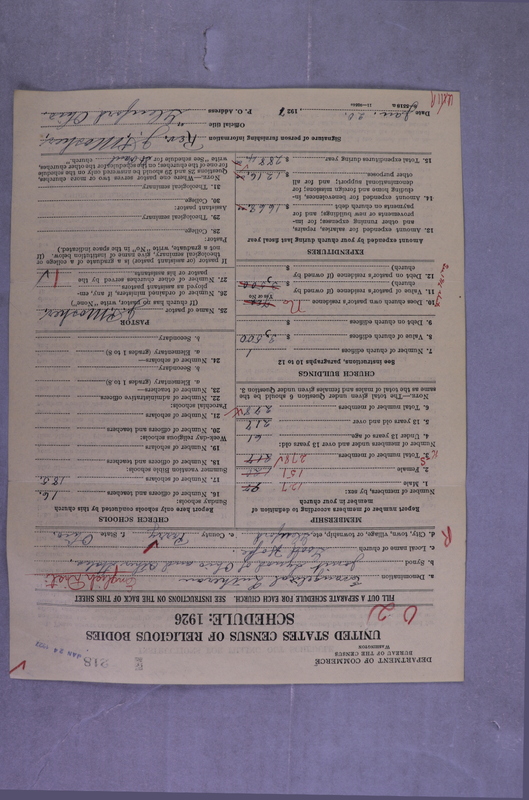 DEPARTMENT OF COMMERCE
BUREAU OF THE CENSUS
WASHINGTON
218
JAN 24 1927
UNITED STATES CENSUS OF RELIGIOUS BODIES
SCHEDULE: 1926
FILL OUT A SEPARATE SCHEDULE FOR EACH CHURCH. SEE INSTRUCTIONS ON THE BACK OF THIS SHEET
a. Denomination Evangelical Lutheran
b. Synod Joint Synod of Ohio and Other States,
c. Local name of church Good Hope.
d. City, town, village, or township, etc. Glenford e. County Perry f. State Ohio.
MEMBERSHIP
Report number of members according to definition of member in your church
Number of members, by sex:
1. Male 127
2. Female 151
3. Total number of members 278
Number of members under and over 13 years old:
4. Under 13 years of age 61
5. 13 years old and over 217
6. Total number of members 278
NOTE.—The total given under Question 6 should be the same as the total of males and females given under Question 3.
CHURCH BUILDINGS
See instructions, paragraphs 10 to 12
7. Number of church edifices 1
8. Value of church edifices $ 3,500
9. Debt on church edifices $
10. Does church own pastor's residence No
Yes or No
11. Value of pastor's residence (if owned by church) $
12. Debt on pastor's residence (if owned by church) $
EXPENDITURES
Amount expended by your church during last fiscal year
13. Amount expended for salaries, repairs, and other running expenses; for improvements or new buildings; and for payments on church debt $ 1668
14. Amount expended for benevolences, including home and foreign missions; for denominational support; and for all other purposes $ 1216
15. Total expenditures during year $ 2884
CHURCH SCHOOLS
Report here only schools conducted by this church
Sunday schools:
16. Number of officers and teachers 16.
17. Number of scholars 185.
Summer vacation Bible schools:
18. Number of officers and teachers
19. Number of scholars
Week-day religious schools:
20. Number of officers and teachers
21. Number of scholars
Parochial schools:
22. Number of administrative officers
23. Number of teachers—
a. Elementary (grades 1 to 8)
b. Secondary
24. Number of scholars—
a. Elementary (grades 1 to 8)
b. Secondary
PASTOR
25. Name of pastor
(If church has no pastor, write "None")
26. Number of ordained ministers, if any, employed as assistant pastors
27. Number of other churches served by the pastor or his assistants 1
If pastor (or assistant pastor) is a graduate of a college or theological seminary, give name of institution below. (If not a graduate, write "No" in the space indicated.)
Pastor:
28. College
29. Theological seminary
Assistant pastor:
30. College
31. Theological seminary
Signature of person furnishing information Rev.
Official title
P. O. Address Glenford Ohio
Date Jan. 20, 192